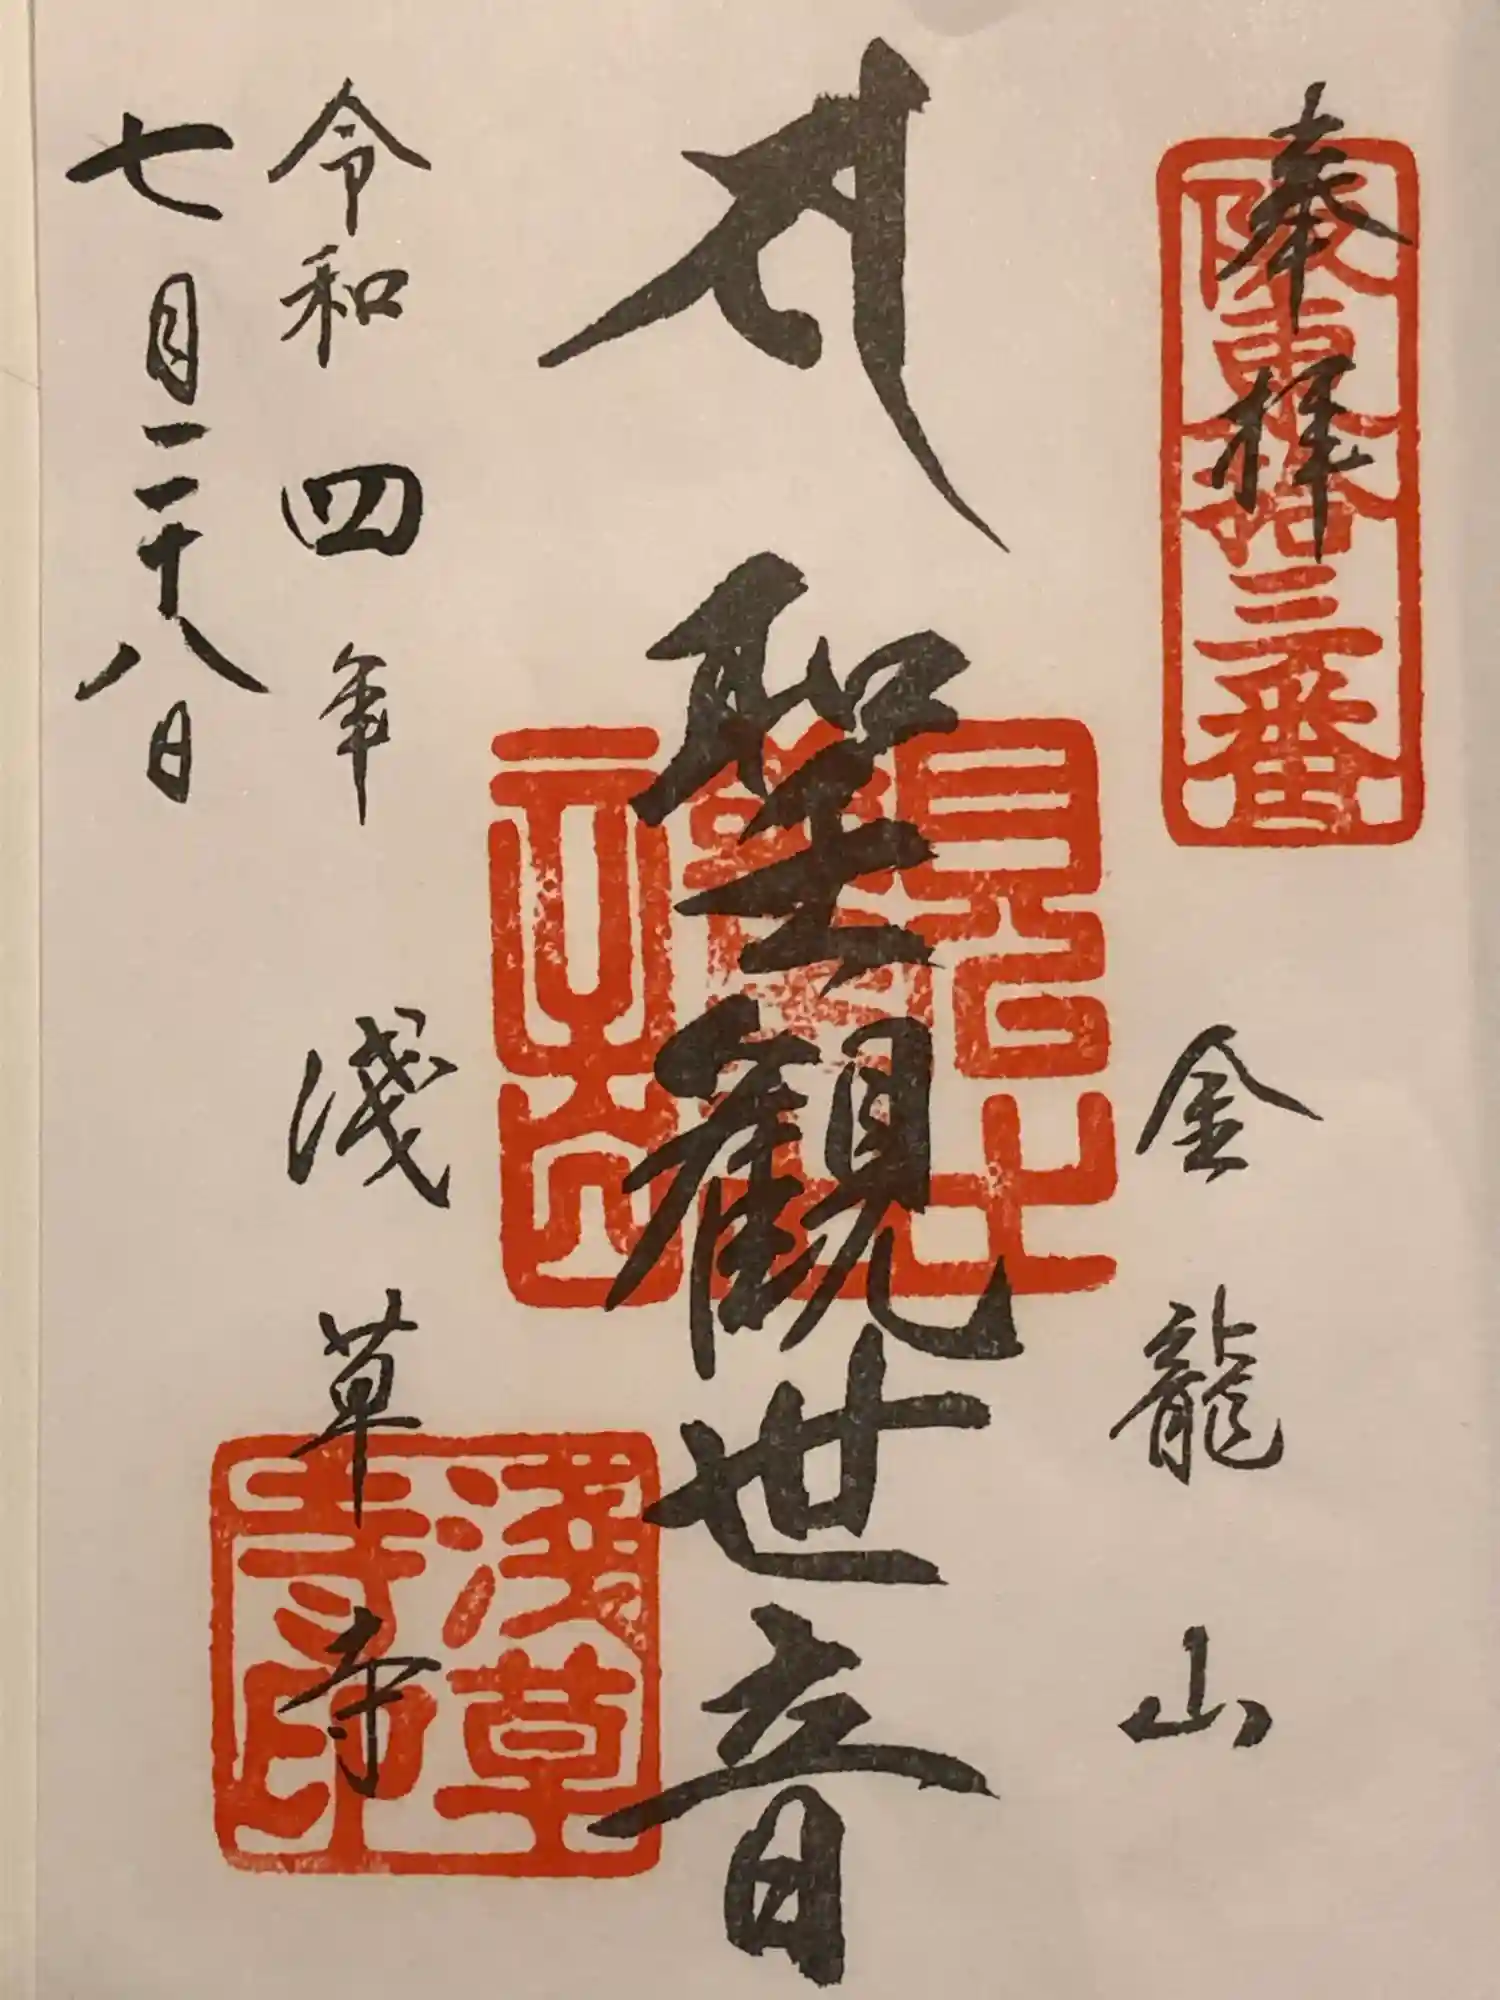 奉拝
坂東拾三番
金龍山
聖観世音
令和四年
七月二十八日
淺草寺
淺草寺印